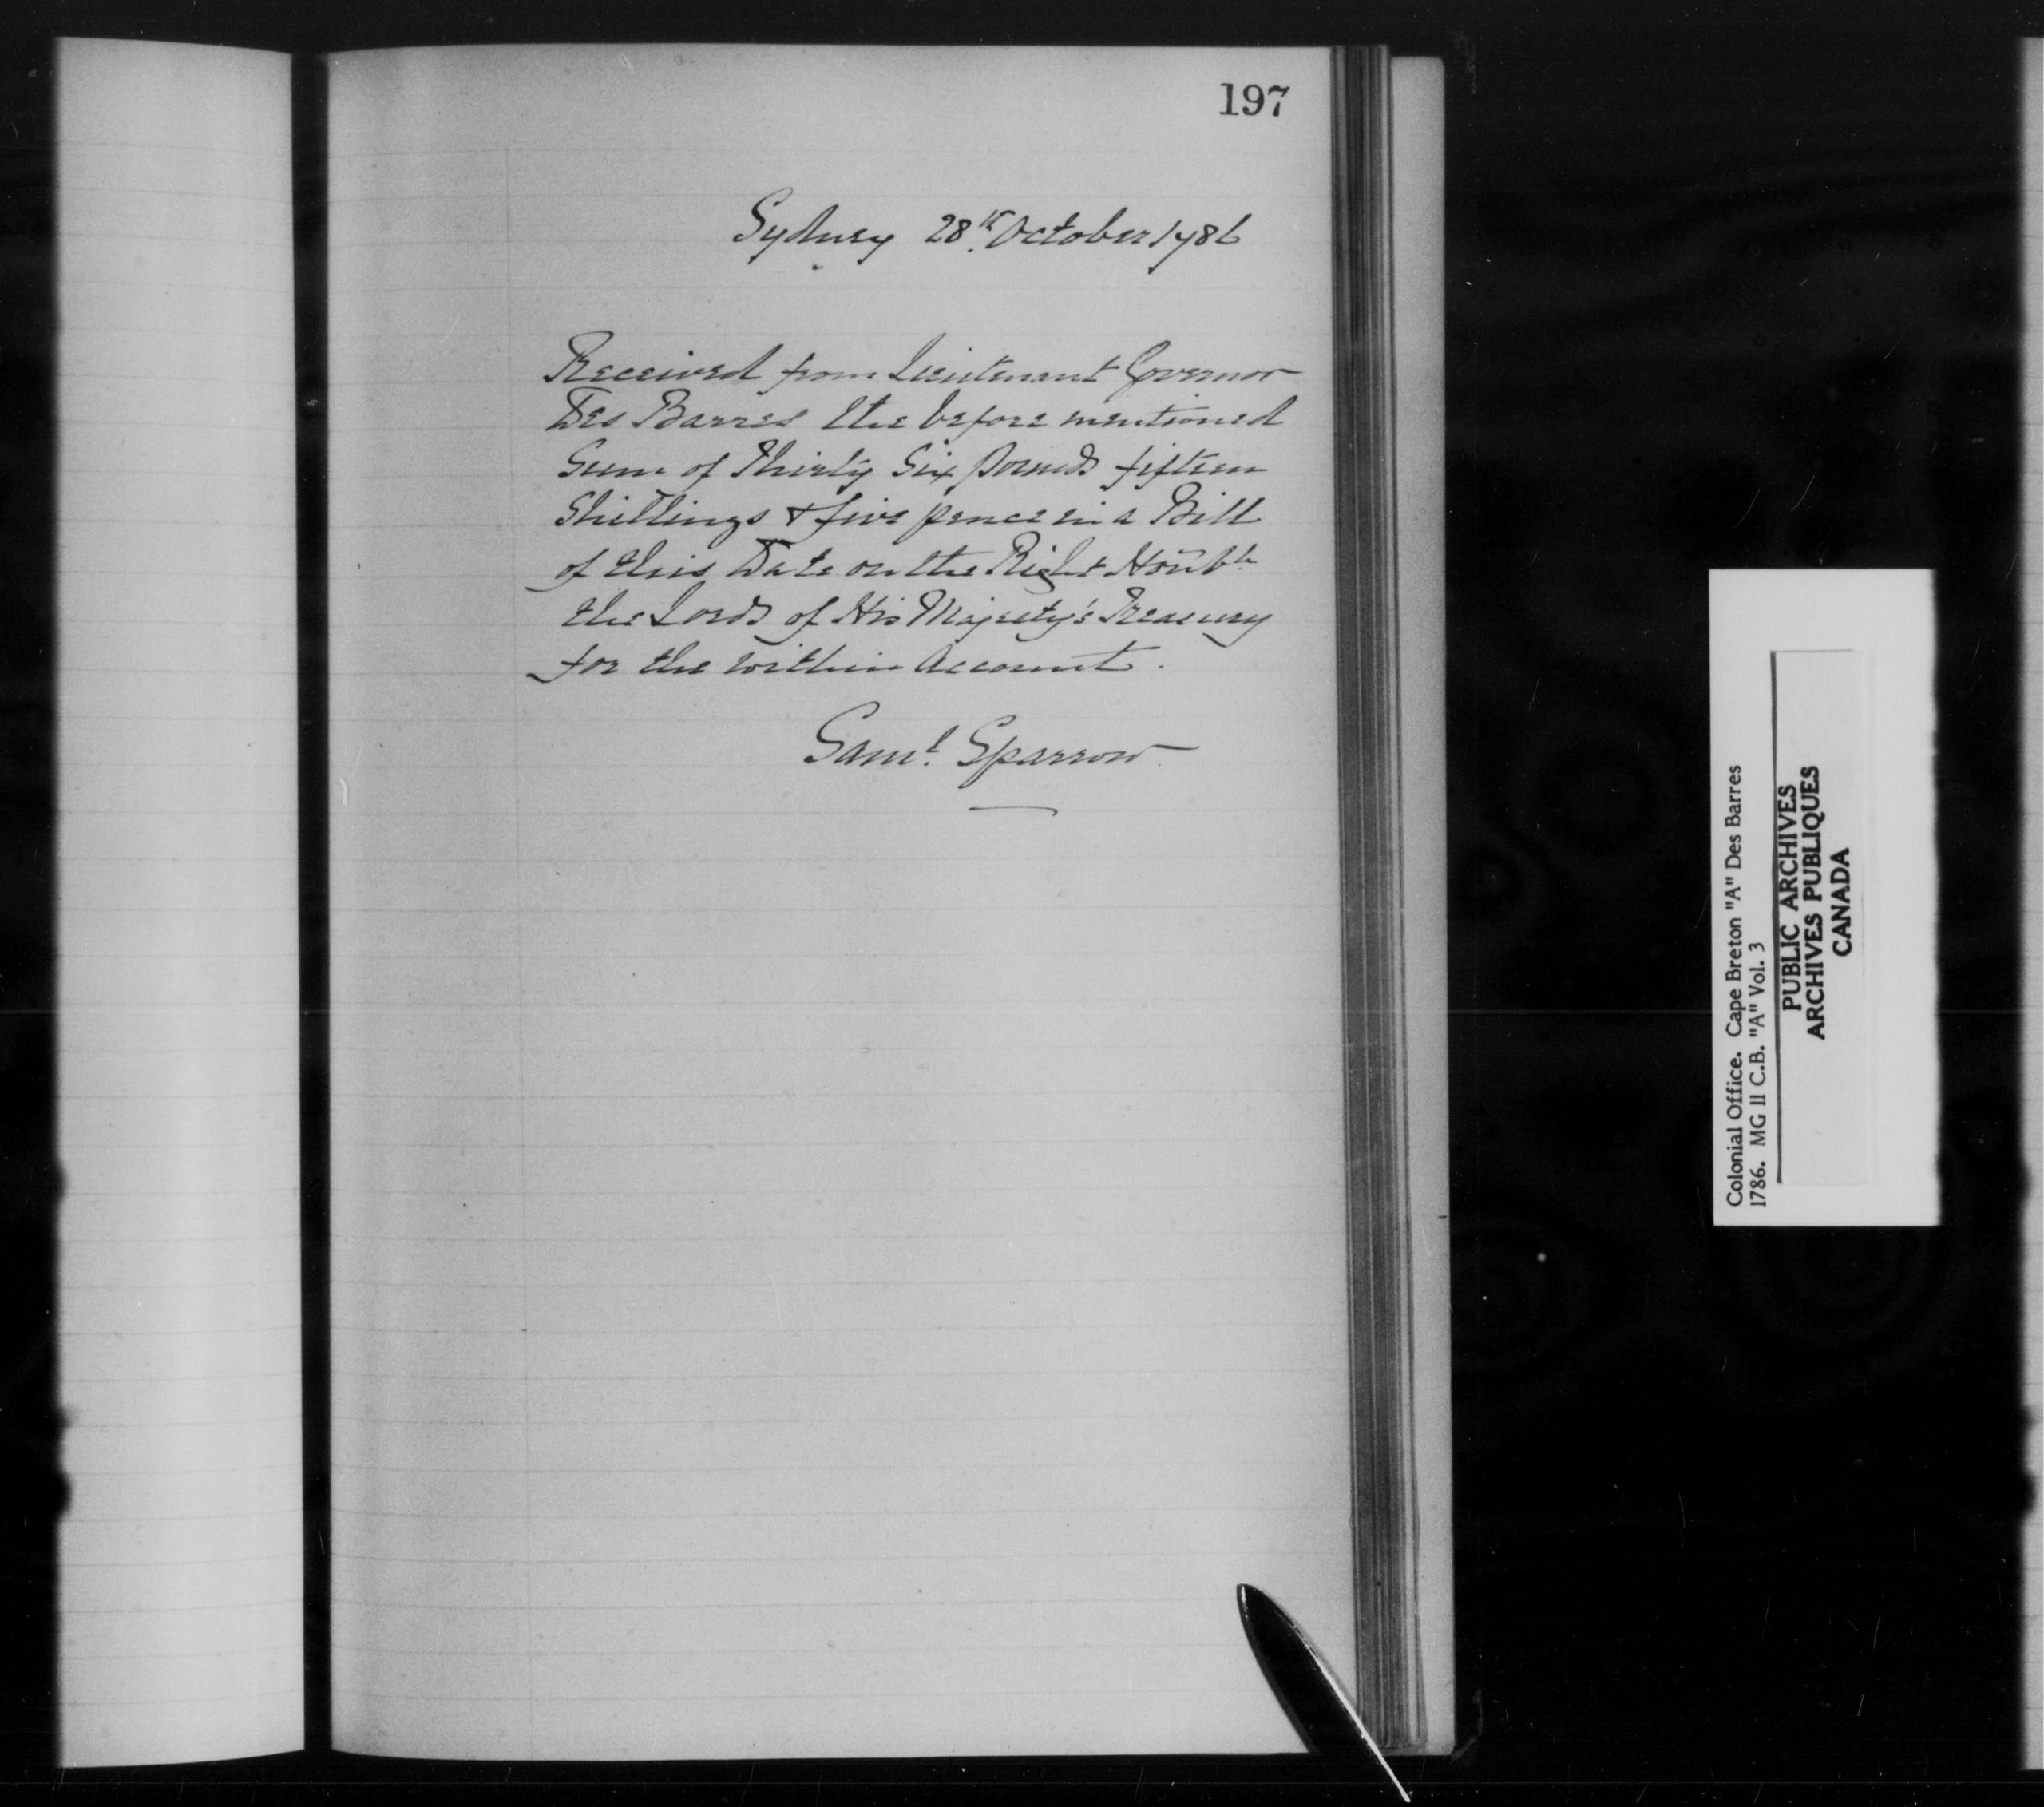 197
Sydney 28th October 1786
Received from Lieutenant Governor
Des Barres the before mentioned
Sum of Thirty Six pounds fifteen
Shillings & five pence in a Bill
of this Date on the Right Honble
the Lords of His Majesty's Treasury
for the within Account.
Saml. Sparrow
Colonial Office. Cape Breton "A" Des Barres
1786. MG 11 C.B. "A" Vol. 3
PUBLIC ARCHIVES
ARCHIVES PUBLIQUES
CANADA